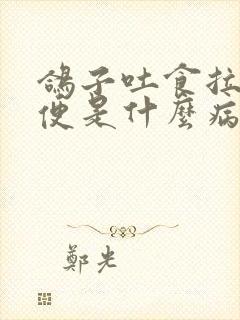 鴿子吐食拉
便是什麼病
鄭光